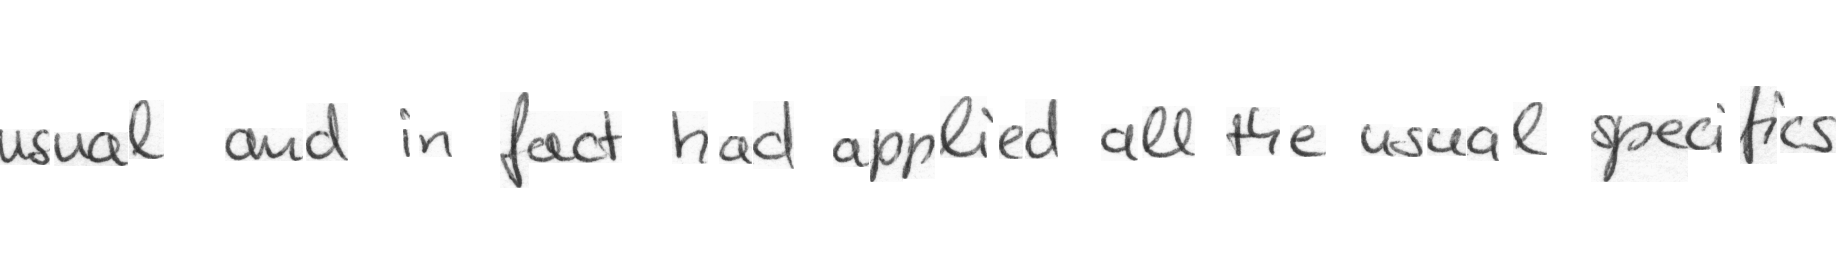 usual and in fact had applied all the usual specifics